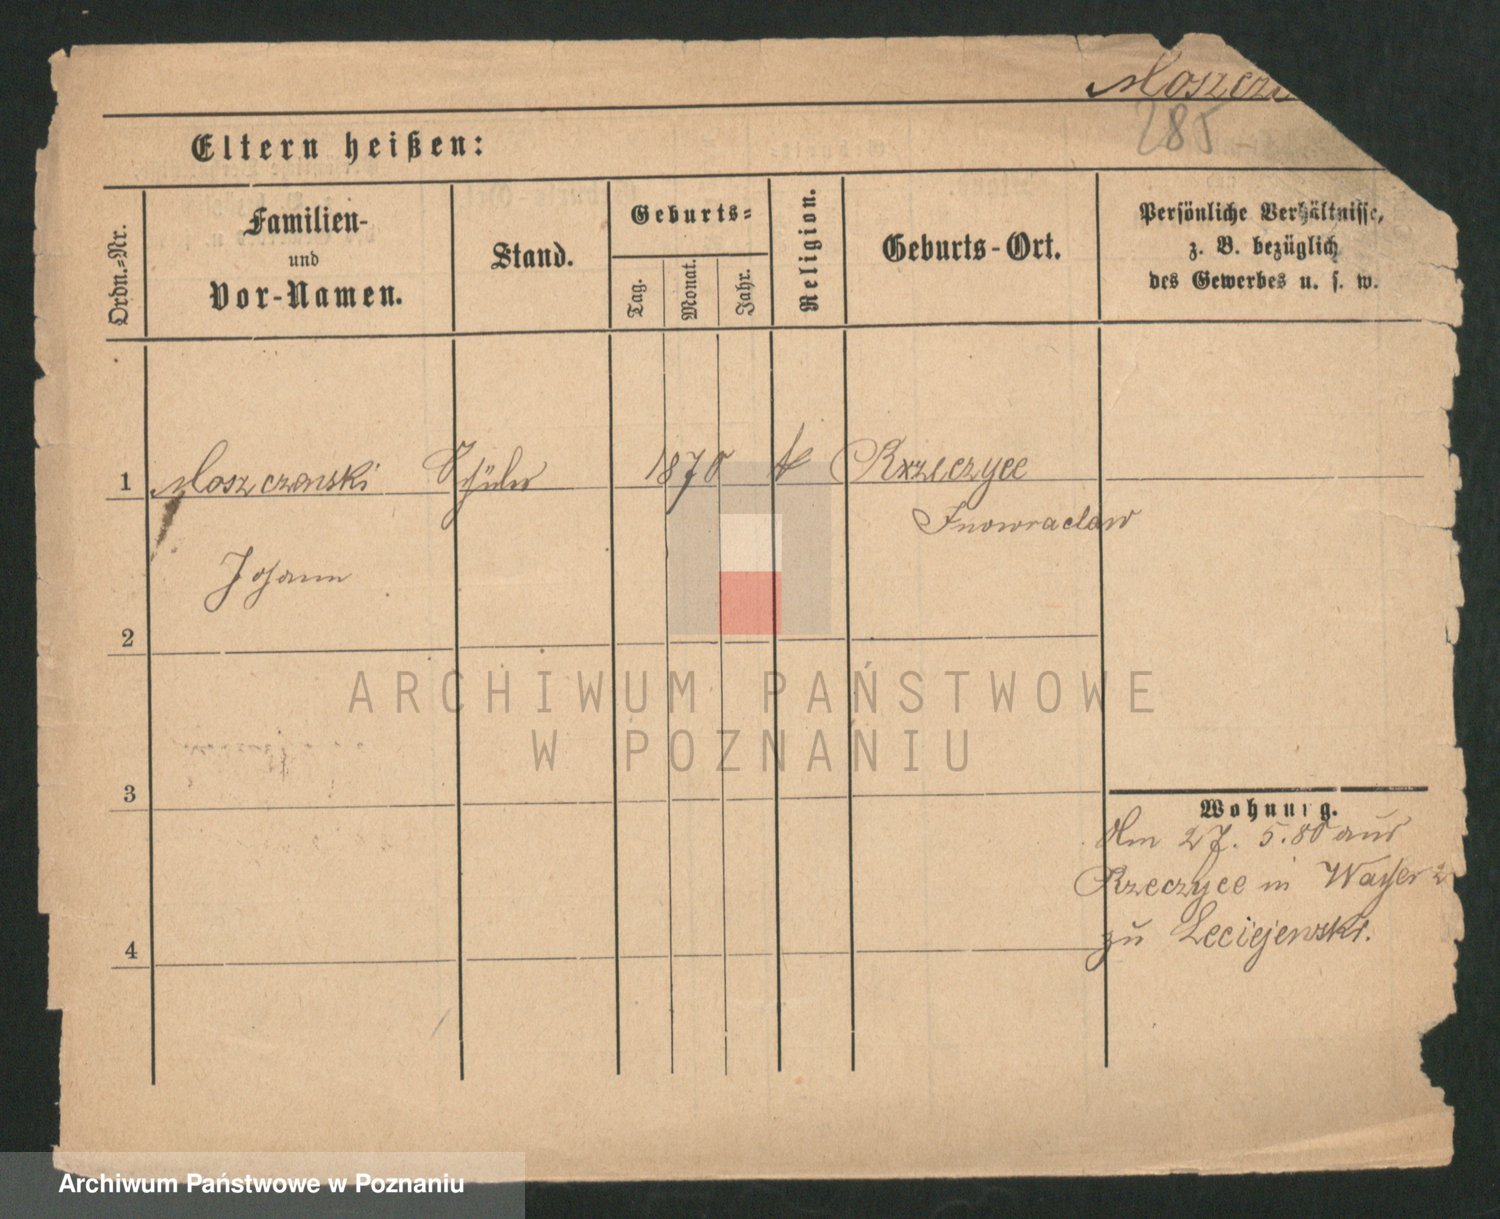 Moszcze
285
Eltern heißen:
Ordn.-Nr.
Familien-
und
Vor-Namen.
Stand.
Geburts-
Tag.
Monat.
Jahr.
Religion.
Geburts-Ort.
Persönliche Verhältnisse,
z. B. bezüglich
des Gewerbes u. s. w.
1 Moszczenski Schüler 1870 k Rzeczyce
Inowraclaw
Johann
2
3
4
Wohnung.
Am 27. 5. 80 aus
Rzeczyce in Wasser 2
zu Leciejewski.
ARCHIWUM PAŃSTWOWE
W POZNANIU
Archiwum Państwowe w Poznaniu